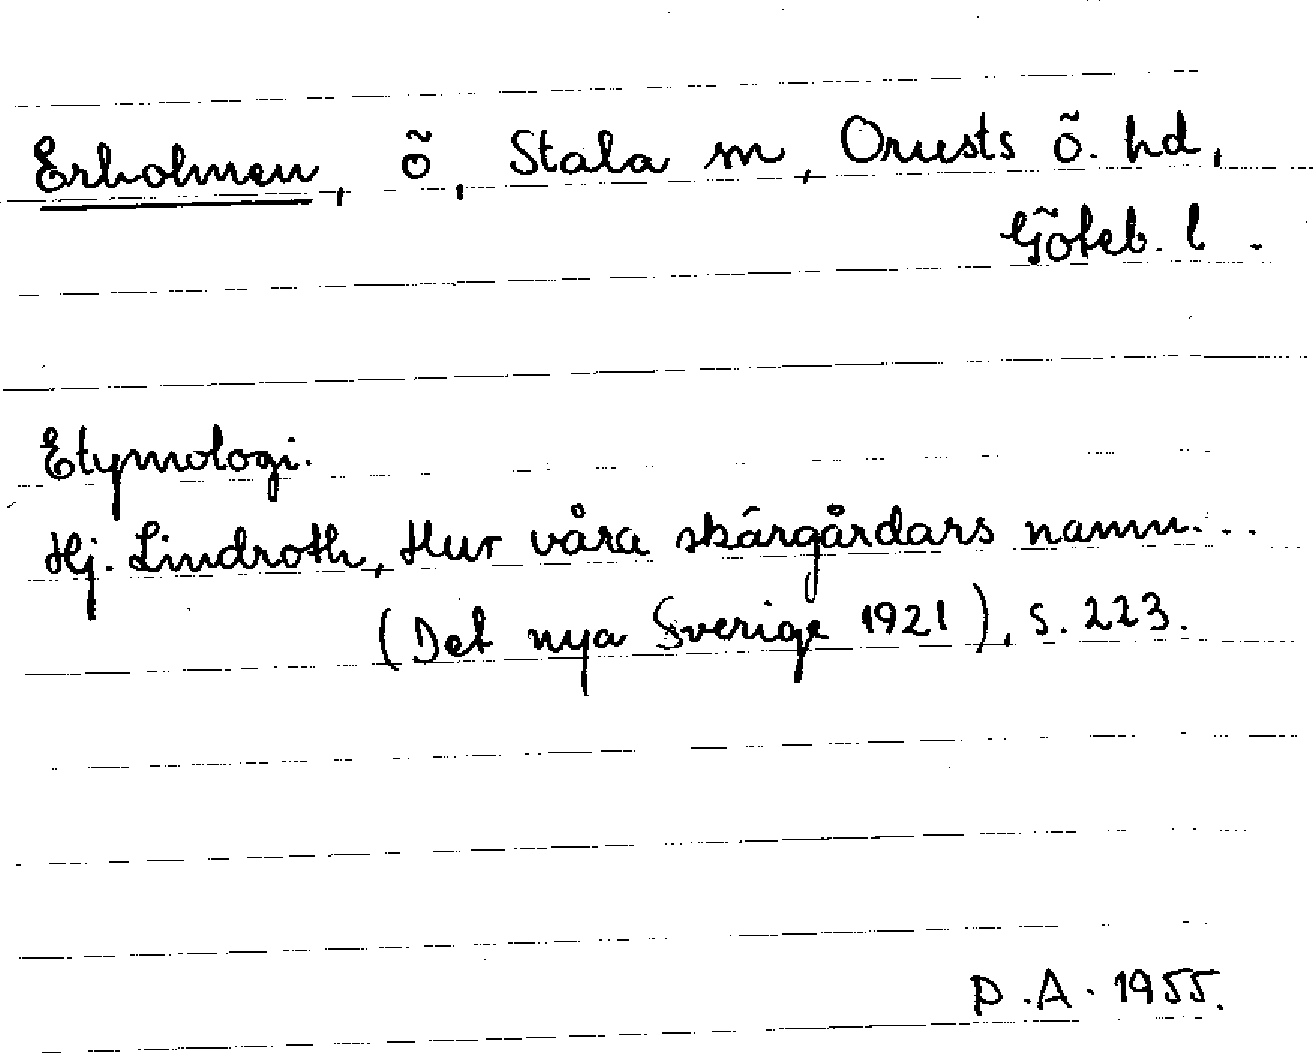 Erholmen, ö, Stala sn, Orusts ö. hd,
Göteb. l.
Etymologi.
Hj. Lindroth, Hur våra skärgårdars namn...
(Det nya Sverige 1921), s. 223.
P.A. 1955.